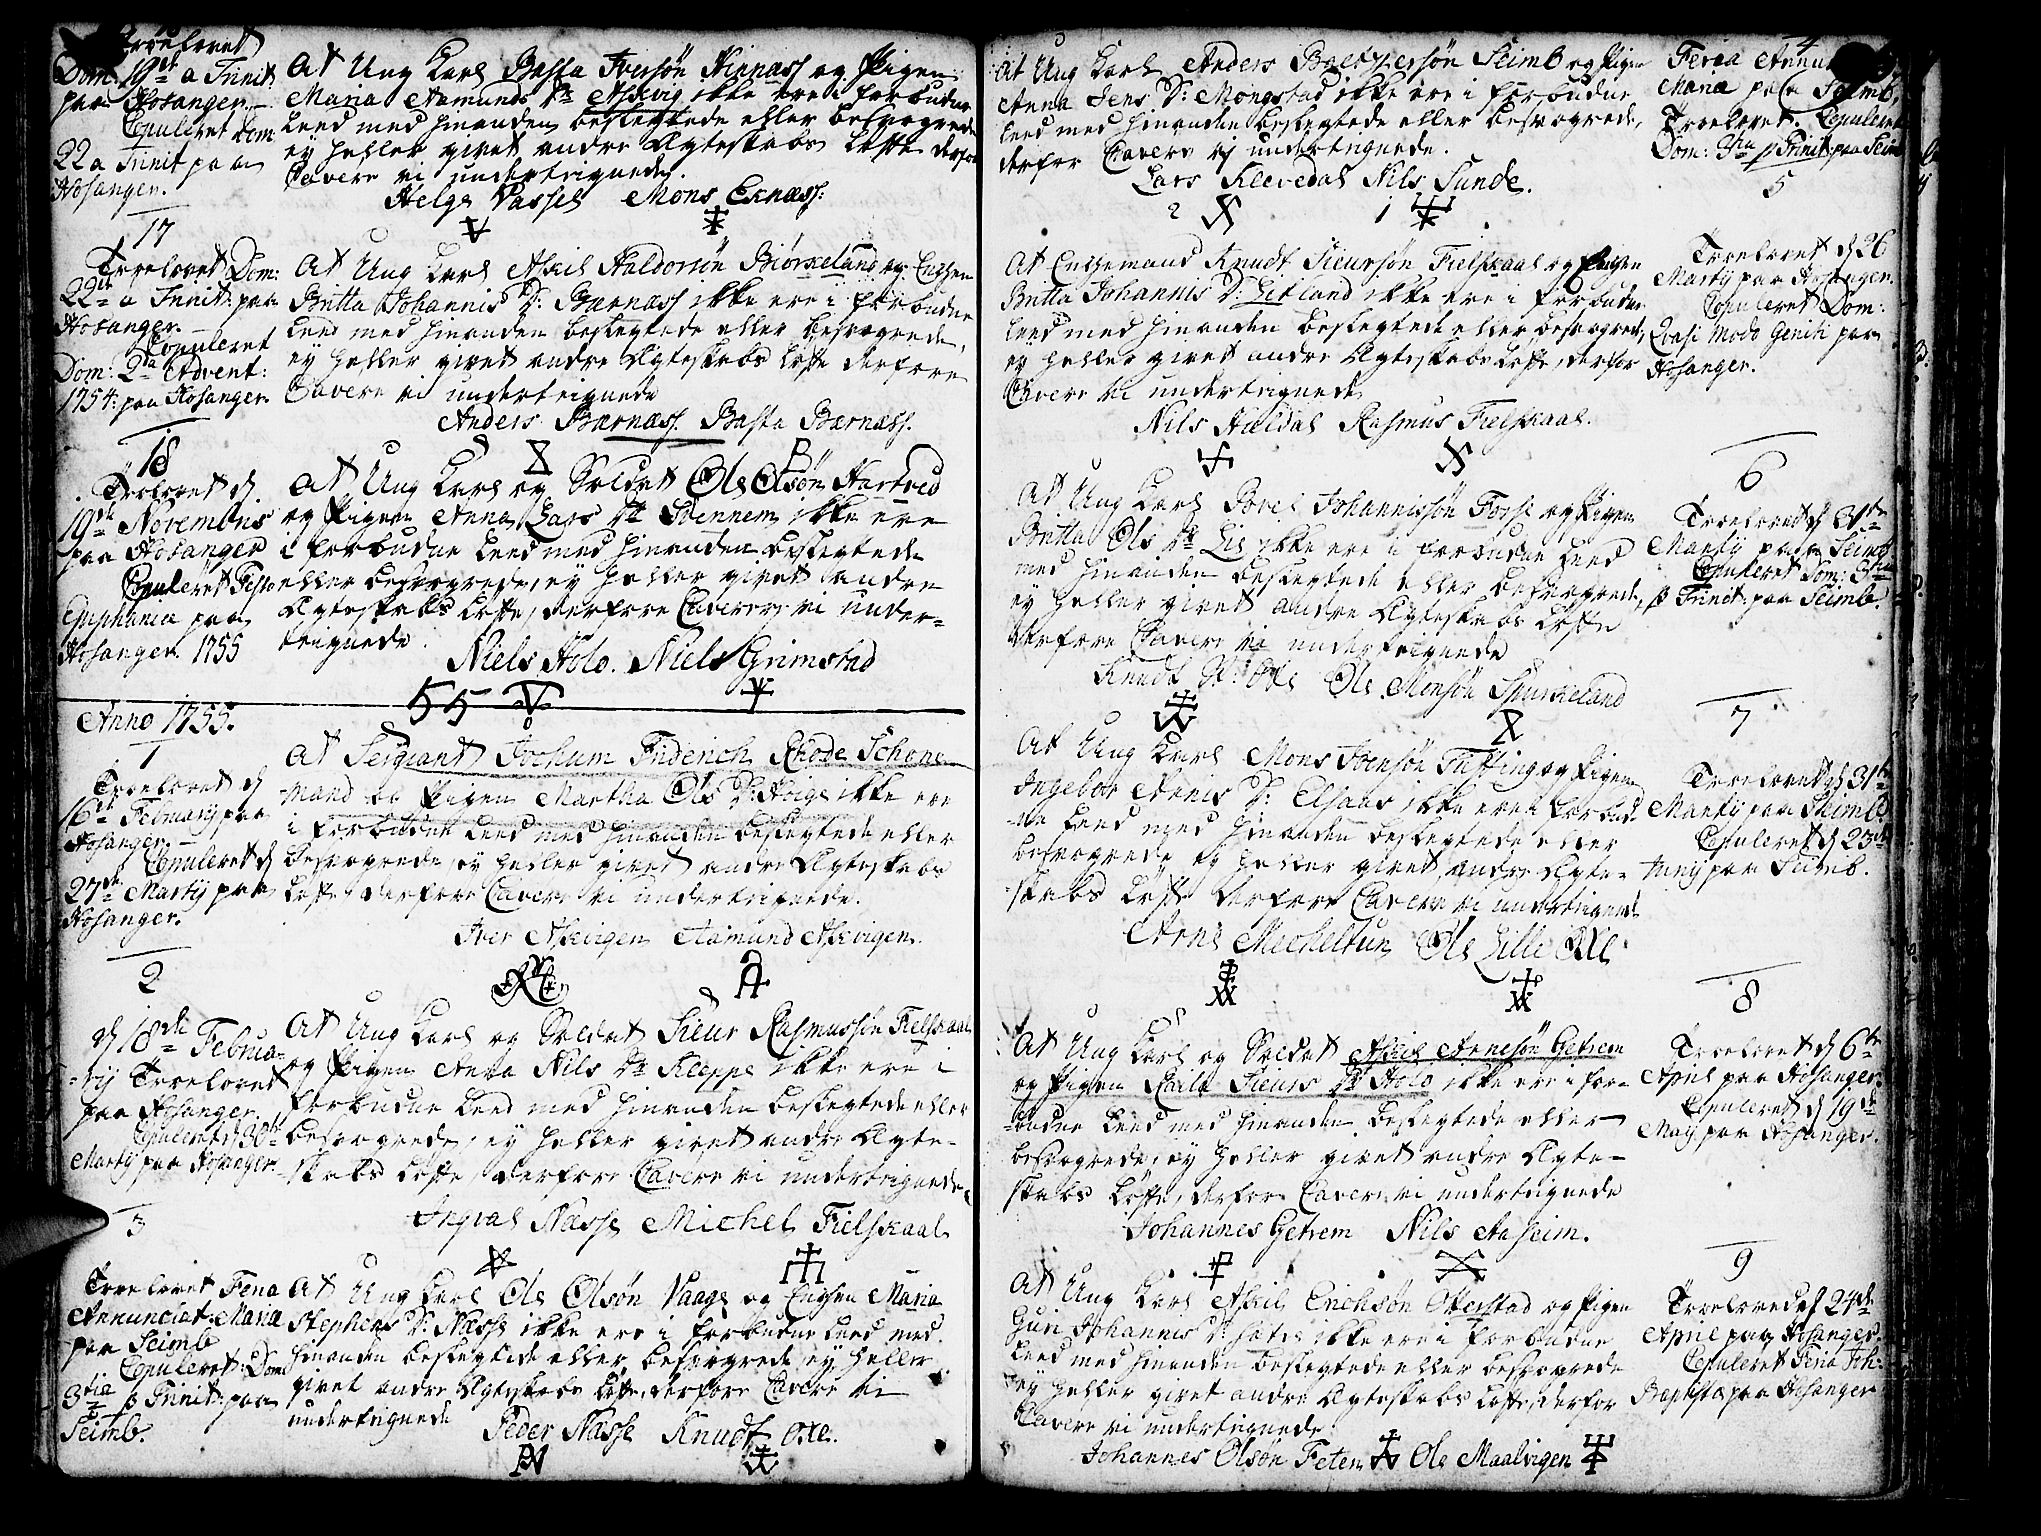 Troelovet
Dom: 19de a Trinit
paa Hosanger.
Copuleret Dom
22 a Trinit paa
Hosanger.
At Ung Karl Basta Iversøn Hinnæss og Pigen
Maria Aamunds Dr Askevig ikke ere i forbudne
Leed med hinanden beslegtede eller besvogrede
ey heller givet andre Ægteskabs Løfte derfore
Cavere vi undertegnede.
Helge Vassel Mons Eknæss:
17
Troelovet Dom:
22de a Trinit: paa
Hosanger.
Copuleret
Dom: 2da Advent:
1754: paa Hosanger
At Ung Karl Askil Haldorsøn Biørkeland og Enken
Britta Johannis D: Bærnæss ikke ere i forbudne
Leed med hinanden beslegtede eller besvogrede,
ey heller givet andre Ægteskabs Løfte derfore
Cavere vi undertegnede
Anders Bærnæss. Basta Bærnæss.
18
Troelovet d.
19de Novembris
paa Hosanger
Copuleret Festo
Epiphania paa
Hosanger. 1755
At Ung Karl og Soldat Ole Olsøn Hartved
og Pigen Anna Lars Dr Soennem ikke ere
i forbudne Leed med hinanden beslegtede
eller besvogrede, ey heller givet andre
Ægteskabs Løfte, derfore Caverere vi under-
tegnede.
Niels Holo. Niels Grimstad
55
Anno 1755.
1
Troelovet d
16de February paa
Hosanger.
Copuleret d
27de Marty paa
Hosanger.
At Sergiant Jochum Friderich Rhode Schone
mand og Pigen Martha Ols D: Hoige ikke ere
i forbudne Leed med hinanden beslegtede eller
besvogrede, ey heller givet andre Ægteskabs
Løfte, derfore Cavere vi undertegnede.
Iver Askvigen Aamund Askvigen.
2
d 18de Februa-
ry Troelovet
paa Hosanger.
Copuleret d 30te
Marty paa Hosanger.
At Ung Karl og Soldat Sieur Rasmussøn Fielskaal
og Pigen Anna Nils Dr Kleppe ikke ere i
forbudne Leed med hinanden beslegtede eller
besvogrede, ey heller givet andre Ægte-
skabs Løfte, derfore Cavere vi undertegnede
Ingval Næsse Michel Fielskaal
3
Troelovet Feria
Annunciat: Maria
paa Seimb
Copuleret Dom
3tia p Trinit: paa
Seimb.
At Ung Karl Ole Olsøn Vaage og Enken Maria
Stephens D: Næsse ikke ere i forbudne Leed med
hinanden beslegtede eller besvogrede, ey heller
givet andre Ægteskabs Løfte, derfore Cavere vi
undertegnede
Peder Næsse Knudt Oxe.
4
At Ung Karl Anders Baltzersøn Seimb og Pigen
Anna Jens D: Mongstad ikke ere i forbudne
Leed med hinanden beslegtede eller besvogrede,
derfor Cavere vi undertegnede.
Lars Klevedal Nils Sunde.
2 1
Feria Annun
Maria paa Seimb,
Troelovet. Copuleret
Dom: 3tia p Trinit paa Seim
5
At Enkemand Knudt Sieursøn Fielskaal og Pigen
Britta Johannis D: Litland ikke ere i forbudne
Leed med hinanden beslegtede eller besvogrede,
ey heller givet andre Ægteskabs Løfte, derfor
Cavere vi undertegnede
Nils Hældal Rasmus Fielskaal.
Troelovet d 26
Marty paa Hosanger.
Copuleret Dom:
Qvasi Modo Geniti paa
Hosanger.
6
At Ung Karl Povel Johannissøn Fosse og Pigen
Britta Ols Dr Lie ikke ere i forbudne Leed
med hinanden beslegtede eller besvogrede,
ey heller givet andre Ægteskabs Løfte
derfore Cavere vi undertegnede
Knudt N: Oxe Ole Monsøn Spurkeland
Troelovet d 31te
Marty paa Seimb
Copuleret Dom: 3tia
p Trinit: paa Seimb.
7
At Ung Karl Mons Iversøn Tufting og Pigen
Ingebor Annis D: Elsaas ikke ere i forbud-
ne Leed med hinanden beslegtede eller
besvogrede ey heller givet andre Ægte-
skabs Løfte derfore Cavere vi undertegnede
Arne Mecheltun Ole Lille Oxe
Troelovet d 31te
Marty paa Seimb
Copuleret d 23de
Juny paa Seimb.
8
At Ung Karl og Soldat Askil Arnesøn Getrem
og Pigen Raile Sieurs Dr Holo ikke ere i for-
budne Leed med hinanden beslegtede eller
besvogrede, ey heller givet andre Ægte-
skabs Løfte, derfor Cavere vi undertegnede
Johannes Getrem Nils Aaseim.
Troelovet d 6te
April paa Hosanger.
Copuleret d 19de
May paa Hosanger.
9
At Ung Karl Askil Erichsøn Otterstad og Pigen
Guri Johannis D: ikke ere i forbudne
Leed med hinanden beslegtede eller besvogrede
ey heller givet andre Ægteskabs Løfte, derfor
Cavere vi undertegnede
Johannes Olsøn Feten Ole Maalvigen
Troelovet d 24de
April paa Hosanger.
Copuleret Feria Joh:
Baptista paa Hosanger